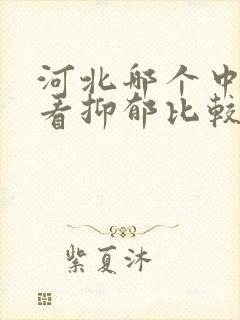 河北哪个中
看抑郁比较
紫夏沐